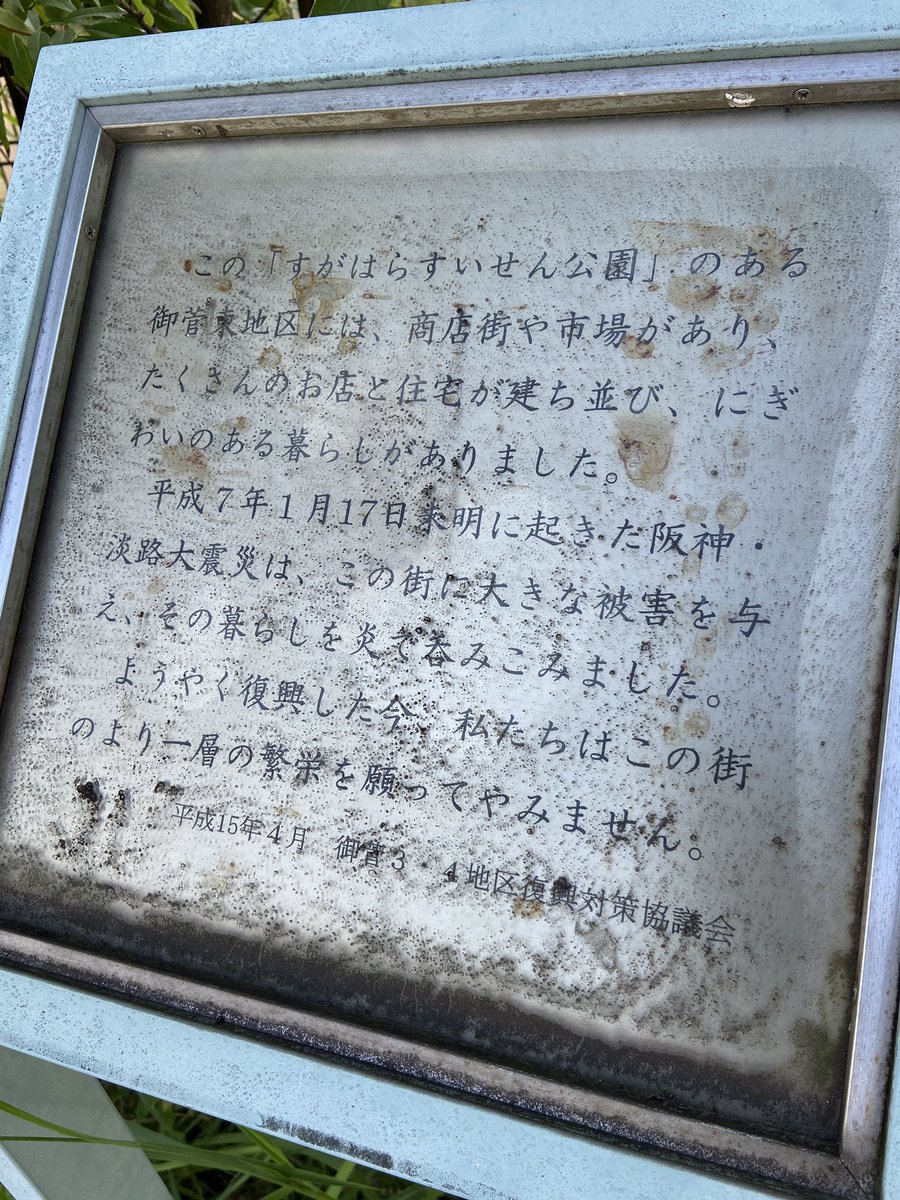 この「すがはらすいせん公園」のある
御菅東地区には、商店街や市場があり、
たくさんのお店と住宅が建ち並び、にぎ
わいのある暮らしがありました。
平成7年1月17日未明に起きた阪神・
淡路大震災は、この街に大きな被害を与
え、その暮らしを炎で呑みこみました。
ようやく復興した今、私たちはこの街
のより一層の繁栄を願ってやみません。
平成15年4月 御菅3 4地区復興対策協議会